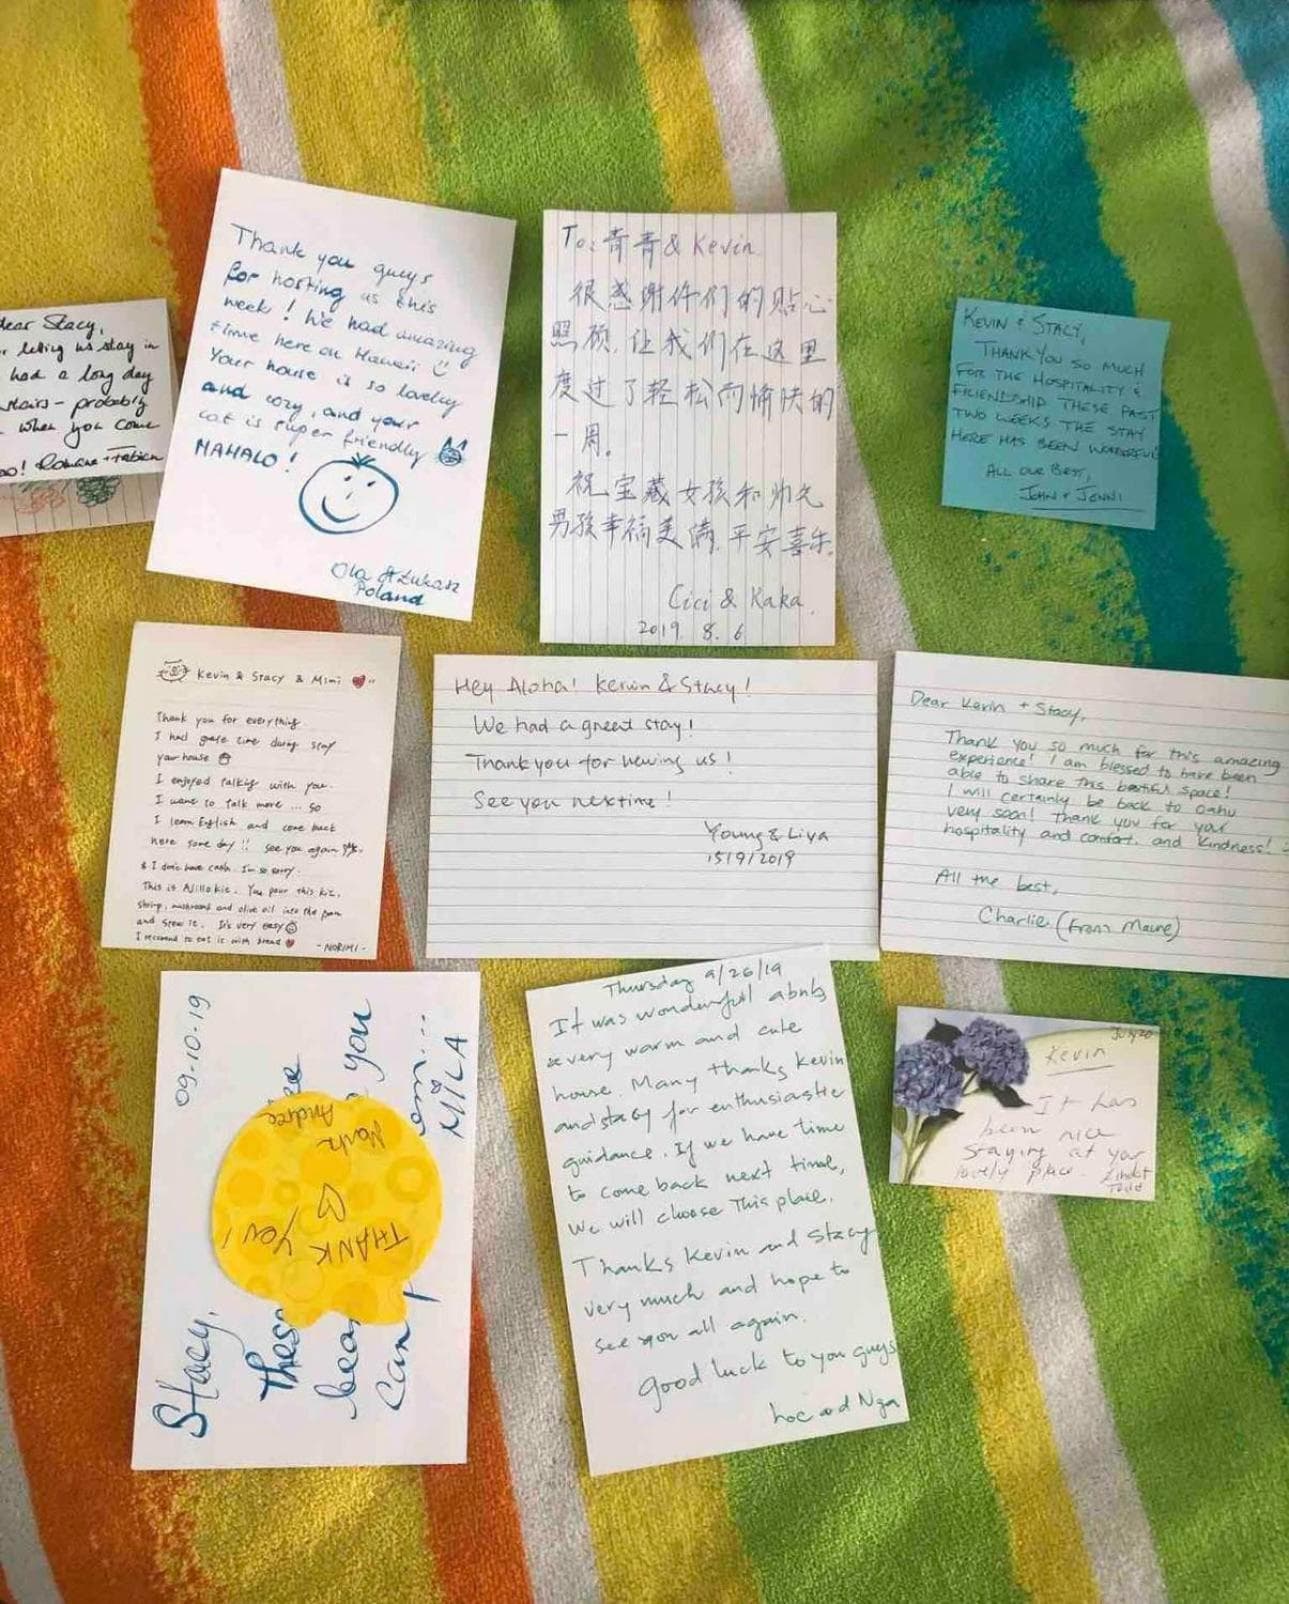 Dear Stacy,
letting us stay in
had a long day
stairs - probably
when you come
Romane + Fabien
Thank you guys
for hosting us this
week! We had amazing
time here on Hawaii
Your house is so lovely
and cozy, and your
cat is super friendly
MAHALO!
Ola & Łukasz
Poland
To: 青青 & Kevin
很感谢你们的贴心
照顾,让我们在这里
度过了轻松而愉快的
一周。
祝宝藏女孩和阳光
男孩幸福美满,平安喜乐.
Cici & Kaka.
2019. 8. 6
KEVIN & STACY,
THANK YOU SO MUCH
FOR THE HOSPITALITY &
FRIENDSHIP THESE PAST
TWO WEEKS THE STAY
HERE HAS BEEN WONDERFUL
ALL OUR BEST,
JOHN & JENNI
Kevin & Stacy & Mimi
Thank you for everything.
I had grate time during stay
your house
I enjoyed talking with you.
I want to talk more ... so
I learn English and come back
here some day!! see you again
& I don't have cash. I'm so sorry.
This is Ajillo kit. You pour this kit,
shrimp, mushroom and olive oil into the pan
and stew it. It's very easy
I recomend to eat it with bread
-NORIMI-
Hey Aloha! Kevin & Stacy!
We had a great stay!
Thank you for having us!
See you nextime!
Young & Liya
15/9/2019
Dear Kevin + Stacy,
Thank you so much for this amazing
experience! I am blessed to have been
able to share this beatiful space!
I will certainly be back to Oahu
very soon! Thank you for your
hospitality and comfort, and kindness! :
All the best,
Charlie (From Maine)
09-10-19
Stacy,
These
you
can
MILA
THANK YOU!
Noah
Andree
Thursday 9/26/19
It was wonderful abnb,
a very warm and cute
house. Many thanks Kevin
and stacy for enthusiastic
guidance. If we have time
to come back next time,
We will choose This place.
Thanks Kevin and Stacy
very much and hope to
see you all again.
Good luck to you guys
Loc and Nga
July 20
Kevin
It has
been nice
staying at your
lovely place.